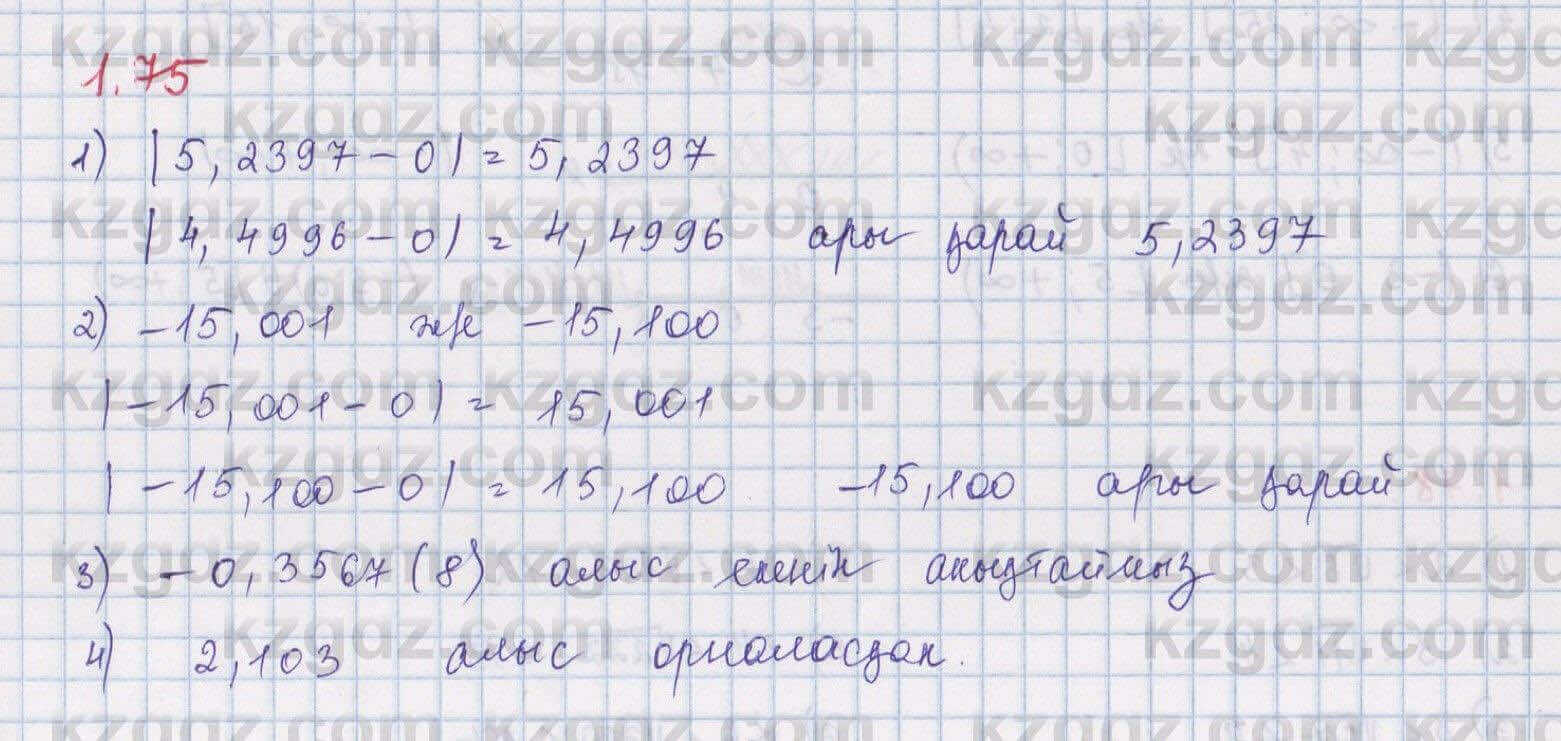 1.75
1) |5,2397-0|=5,2397
|4,4996-0|=4,4996 ары қарай 5,2397
2) -15,001 және -15,100
|-15,001-0|=15,001
|-15,100-0|=15,100 -15,100 ары қарай
3) -0,3567(8) алыс екенін анықтаймыз
4) 2,103 алыс орналасқан.